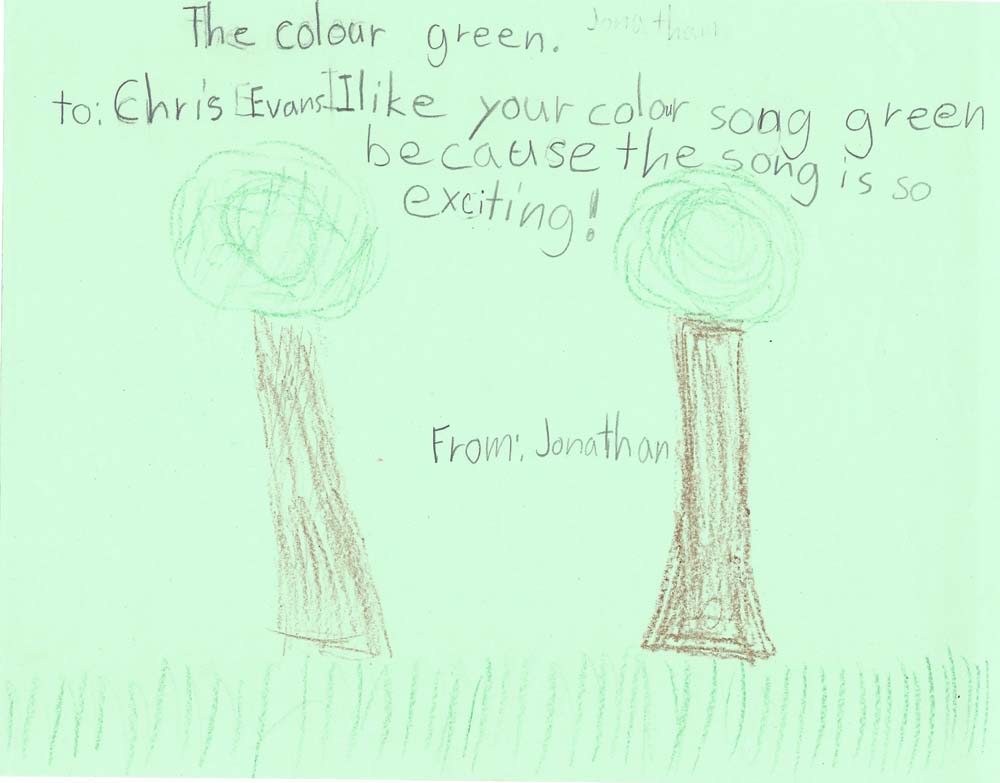 The colour green. Jonathan
to: Chris Evans I like your colour song green
because the song is so
exciting!
From: Jonathan